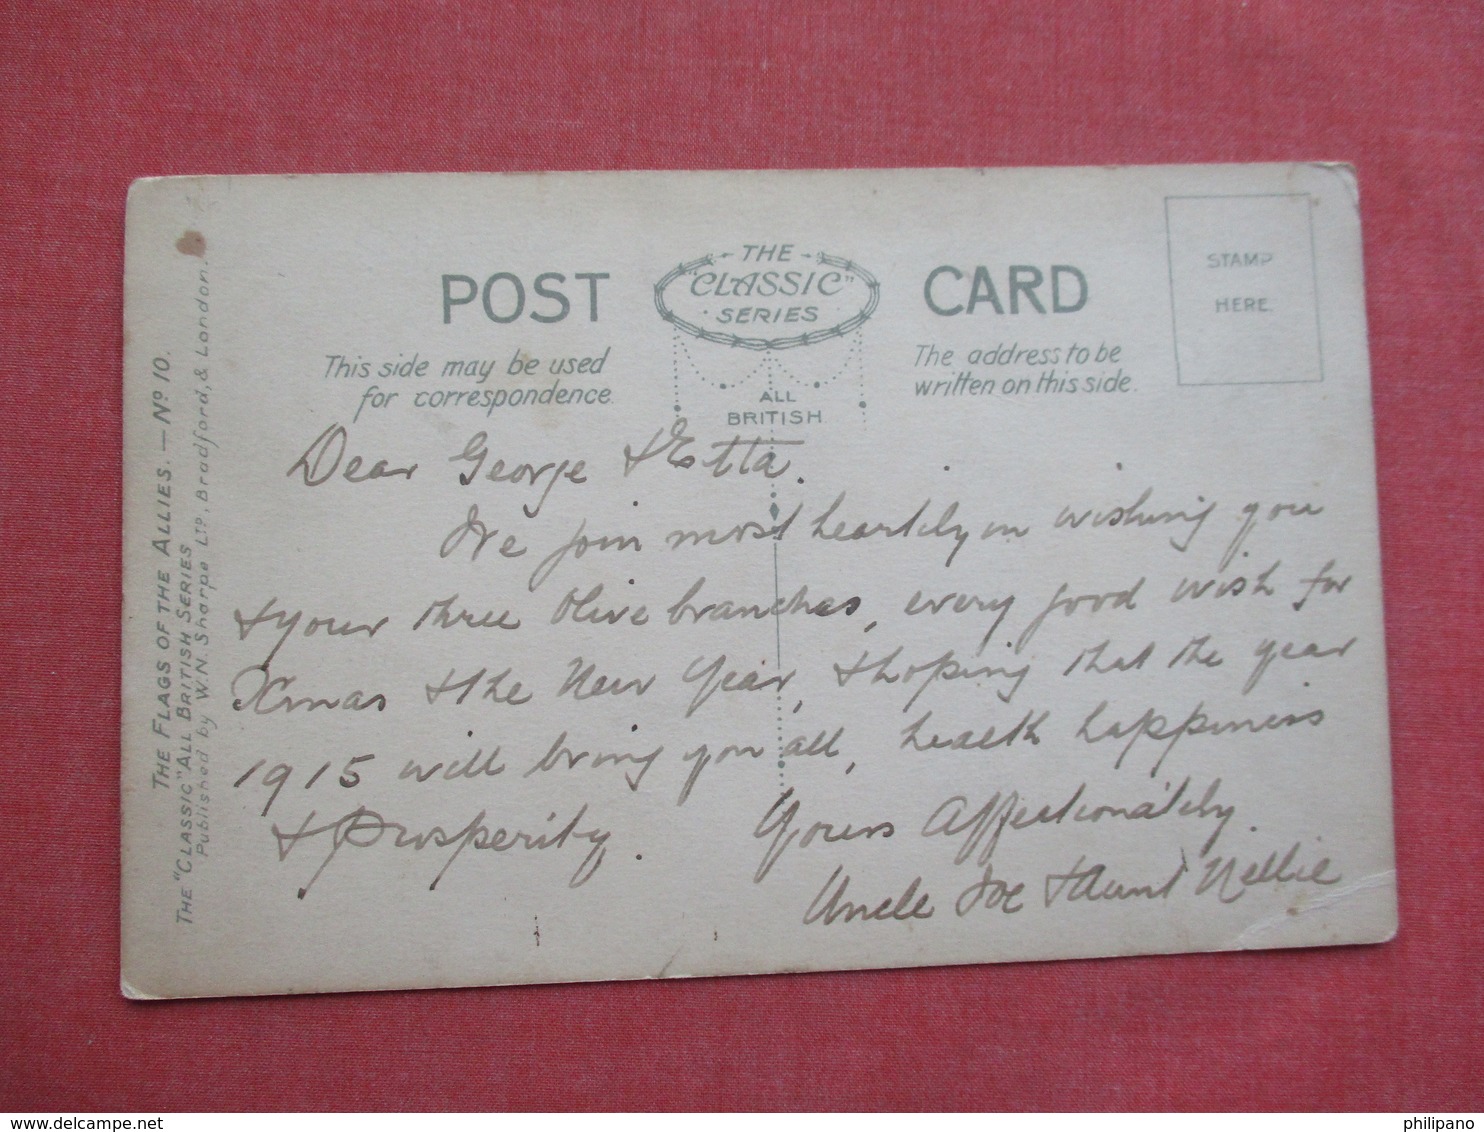 THE
"CLASSIC"
SERIES
POST CARD
STAMP
HERE.
This side may be used
for correspondence.
ALL
BRITISH
The address to be
written on this side.
Dear George & Etta.
We join most heartily in wishing you
& your three Olive branches, every good wish for
Xmas & the New Year, & hoping that the year
1915 will bring you all, health happiness
& Prosperity.
Yours Affectionately.
Uncle Joe & Aunt Nellie
THE FLAGS OF THE ALLIES.—No 10.
THE "CLASSIC" ALL BRITISH SERIES
Published by W.N. Sharpe LTD, Bradford, & London.
delcampe.net
philipano